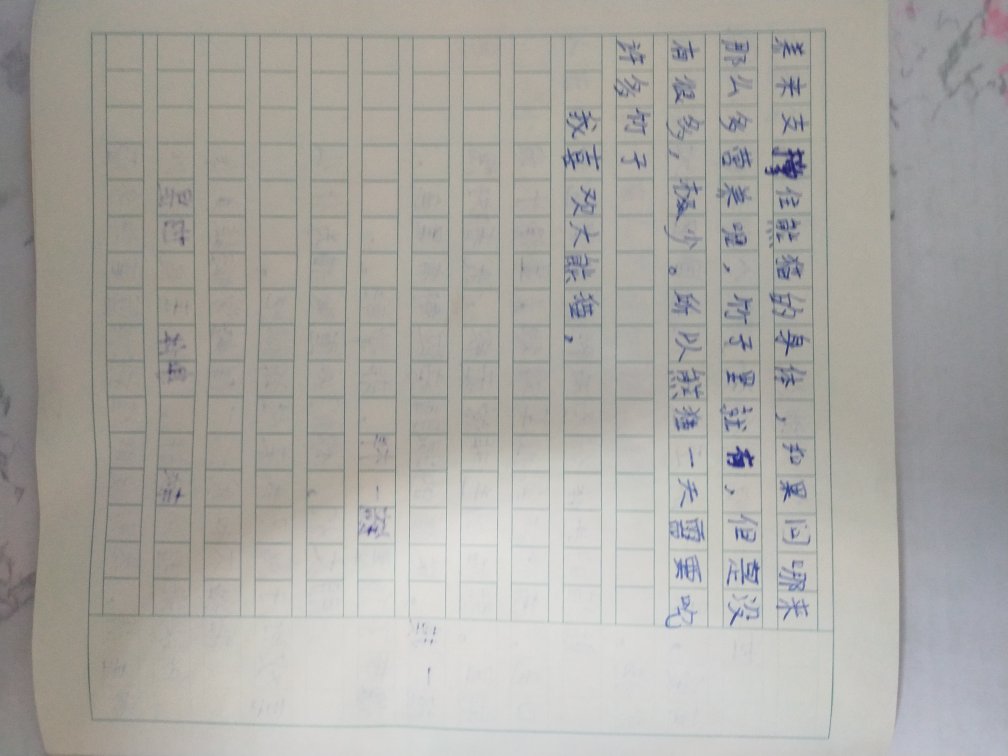 养来支撑住熊猫的身体，如果问哪来
那么多营养呢，竹子里就有，但是没
有很多，极少。所以熊猫一天需要吃
许多竹子
我喜欢大熊猫，